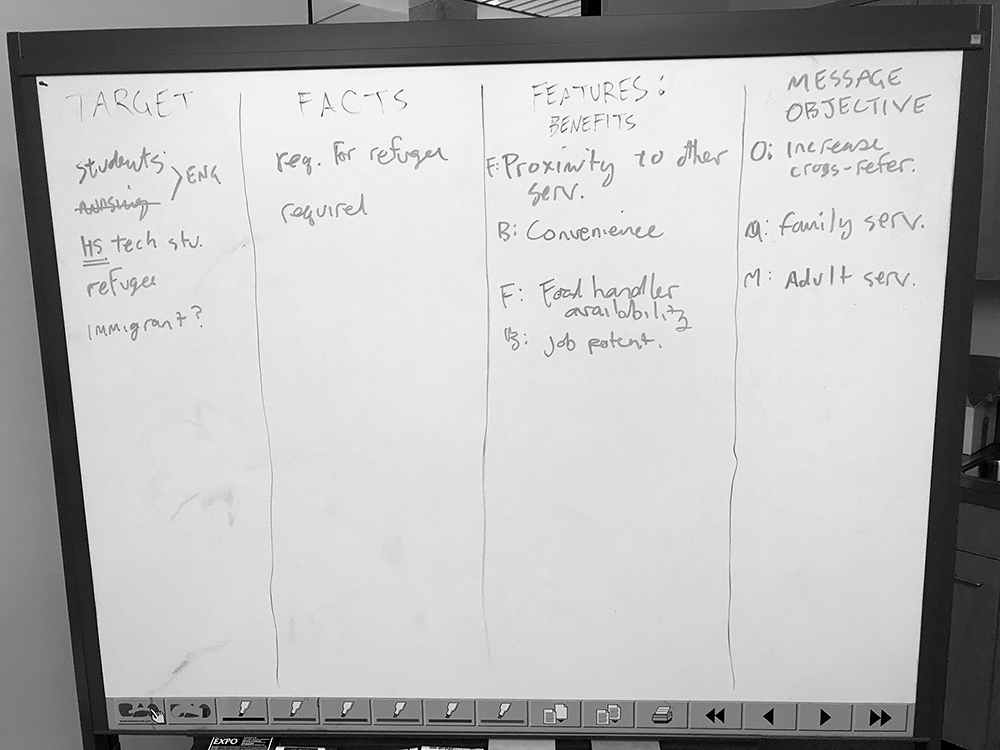 TARGET
students
nursing
ENG
HS tech stu.
refugee
immigrant?
FACTS
req. for refugee
required
FEATURES:
BENEFITS
F: Proximity to other
serv.
B: Convenience
F: Food handler
availability
B: job potent.
MESSAGE
OBJECTIVE
O: increase
cross-refer.
family serv.
M: Adult serv.
EXPO